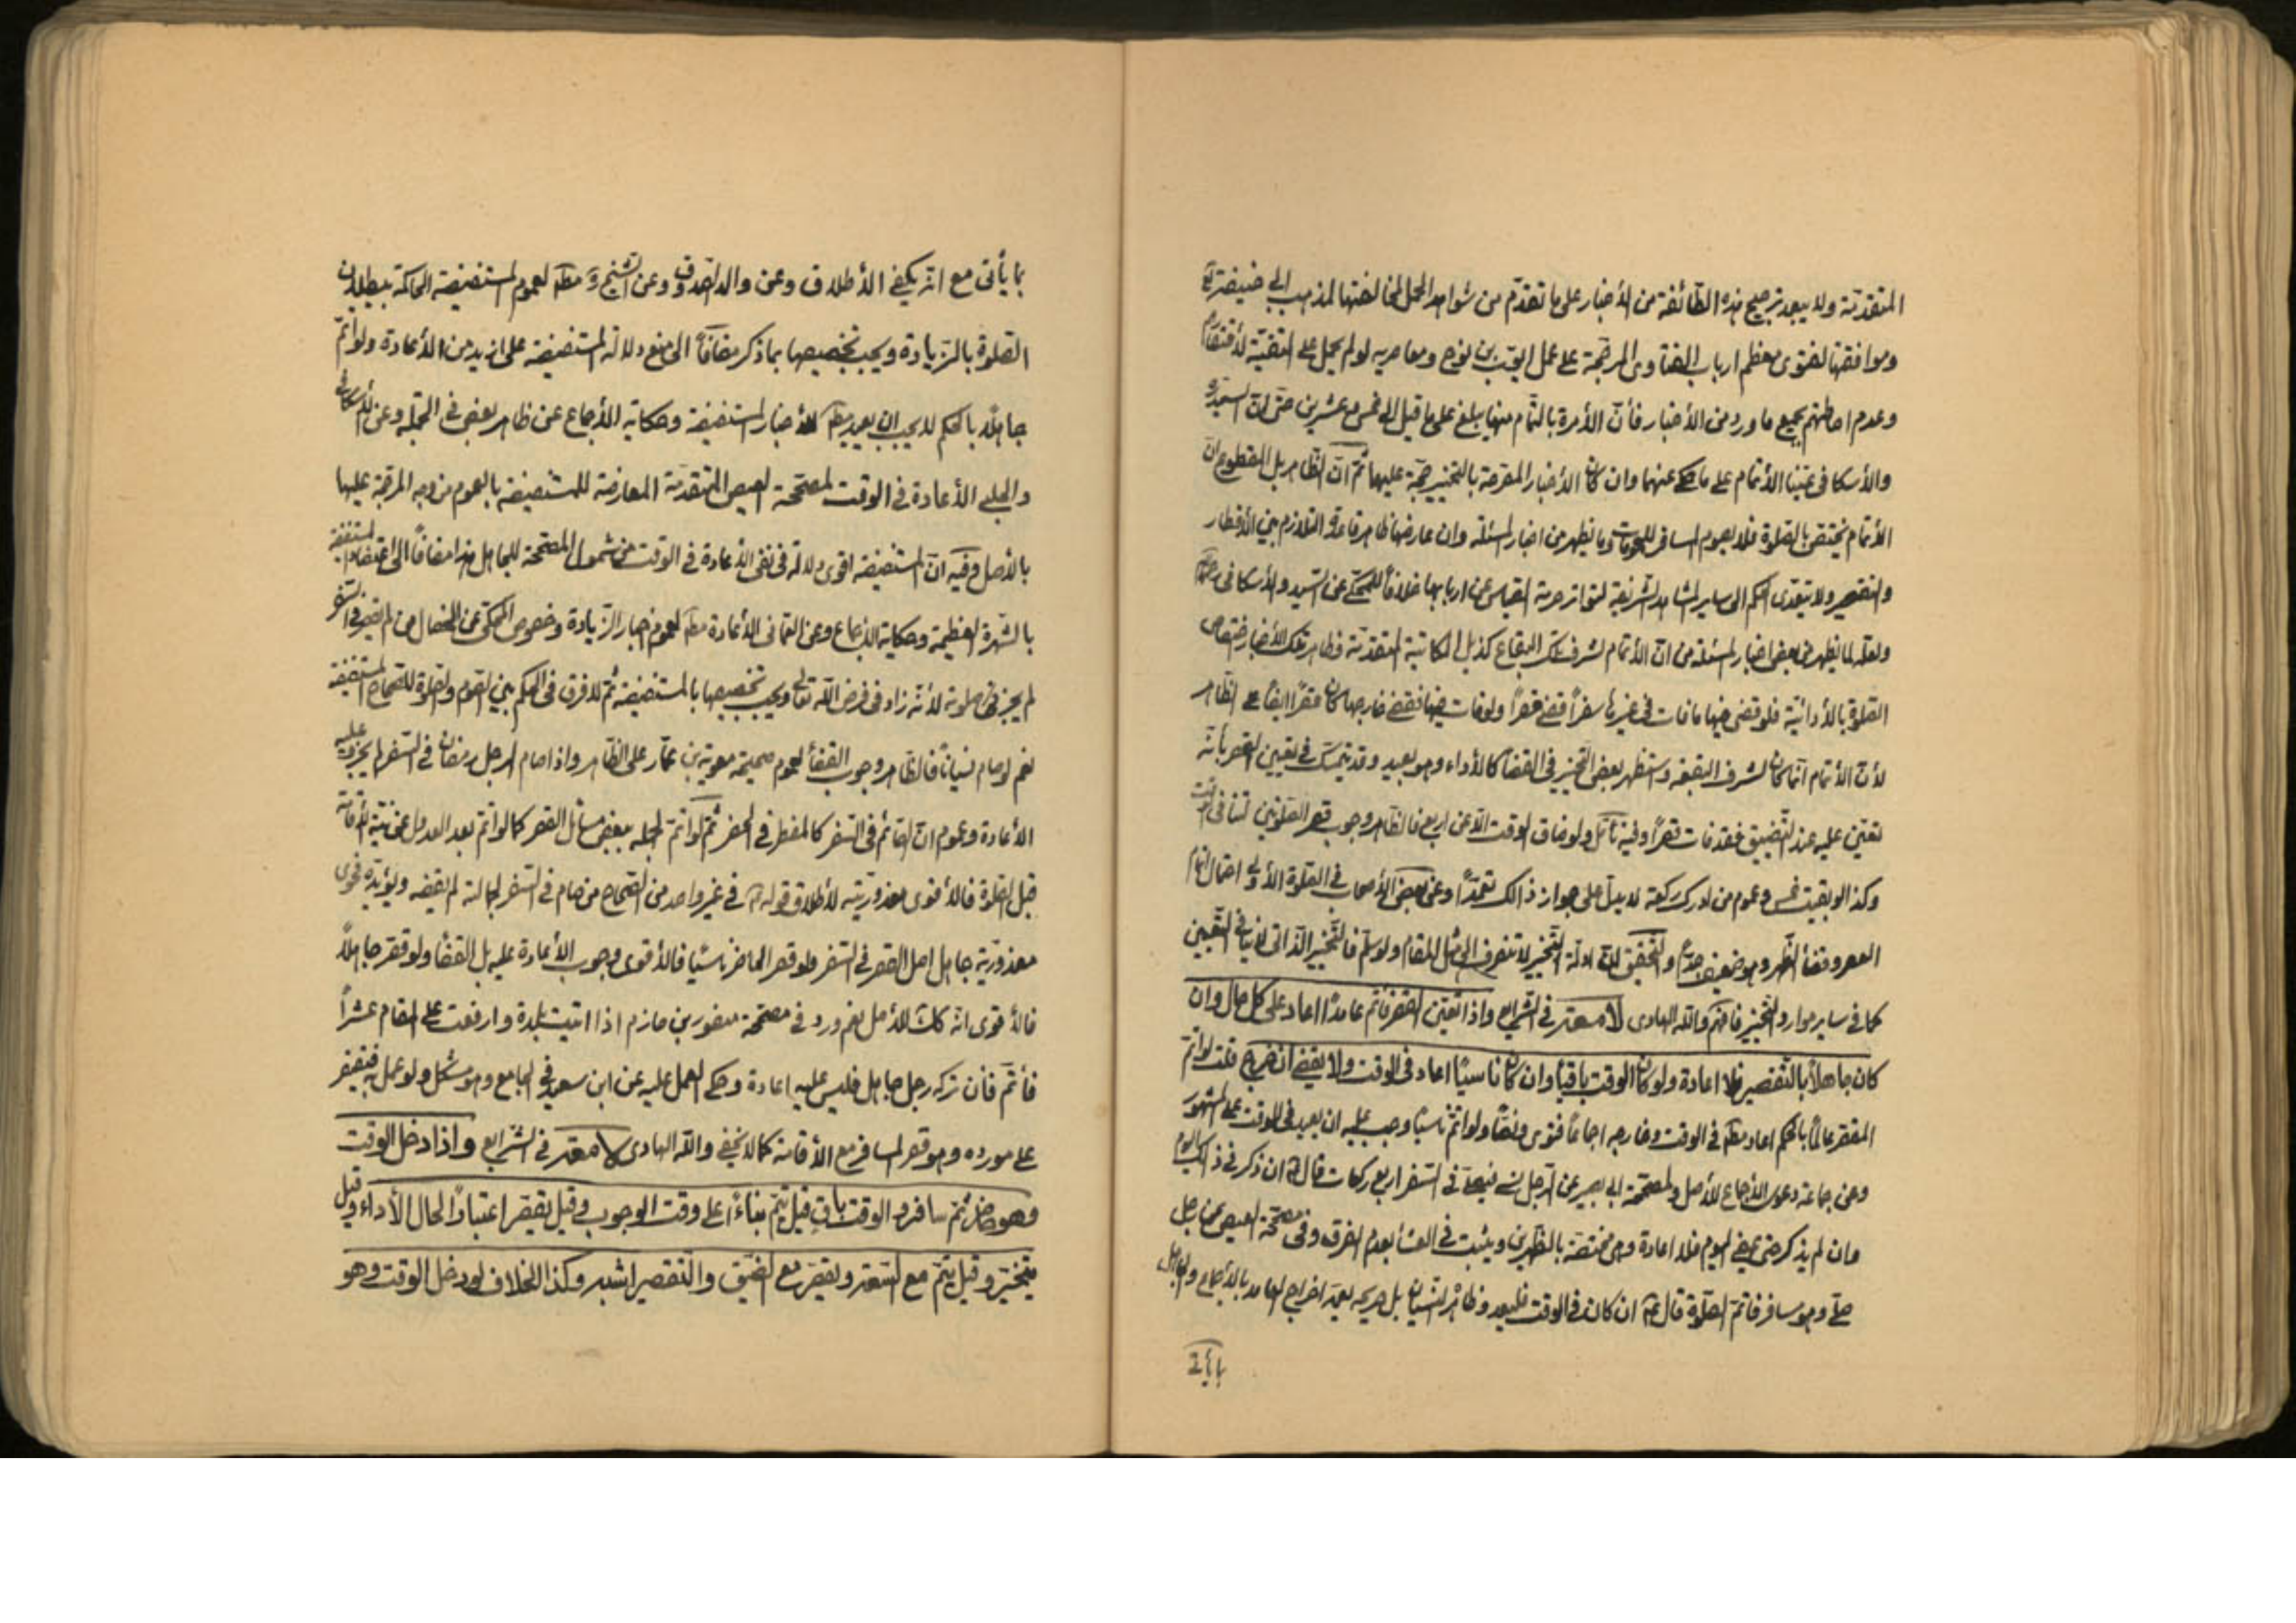 المتقدمة ولا يبعد ترجيح هذه الطائفة من الأخبار على ما تقدم من شواهد الحمل لمخالفتها لمذهب ابي حنيفة
وموافقتها لفتوى معظم ارباب الفتاوى المرجحة على عمل ايوب بن نوح ومعاصريه لو لم يحمل على التقية
وعدم احاطتهم بجميع ما ورد من الأخبار فأن الأمرة بالتمام منها يبلغ على ما قيل الى خمس وعشرين حتى ان السيد
والأسكافي عينا الأتمام على ما حكى عنهما وان كان الأخبار المصرحة بالتخيير حجة عليهما ثم ان الظاهر بل المقطوع ان
الأتمام يختص بالصلوة فلا يصوم المسافر وما يظهر من اخبار المسئلة وان عارضها ظاهر قاعدة التلازم بين الأفطار
والتقصير ولا يتعدى الحكم الى ساير المشاهد الشريفة لتواتر حرمة القياس عن اربابها خلافاً للمحكى عن السيد والأسكافى
ولعله لما يظهر من بعض اخبار المسئلة من ان الأتمام لشرف تلك البقاع كذيل المكاتبة المتقدمة وظاهر تلك الأخبار اختصاص
الصلوة بالأدائية فلو قضى فيها ما فات في غيرها سفراً قضى قصراً ولو فات فيها فقضى خارجها كان قصراً ايضاً على الظاهر
لأن الأتمام انما كان لشرف البقعة واستظهر بعض التخيير في القضآء كالأداء وهو بعيد وقد يتمسك في تعيين القصر بأنه
تعين عليه عند التضيق فقد فات قصراً وفيه تأمل ولو ضاق الوقت الا عن اربع فالظاهر وجوب قصر الصلوتين لتنافى
وكذا لو بقيت خمس وعموم من ادرك ركعة لا يدل على جواز ذالك تعمداً وعن بعض الأصحاب في الصلوة الأولى احتمال اتمام
العصر وقضأ الظهر وهو ضعيف جداً والتحقيق ان ادلة التخيير لا تنصرف الى مثل المقام ولو سلم فالتخيير الذاتى لا ينافى التعيين
كما في ساير موارد التخيير فافهم والله الهادى قال المصنف في الشرايع واذا تعين القصر فاتم عامداً اعاد على كل حال وان
كان جاهلاً بالتقصير فلا اعادة ولو كان الوقت باقياً وان كان ناسياً اعاد فى الوقت ولا يقضى ان خرج قلت لو اتم
المقصر عالماً بالحكم اعاد مطلقا في الوقت وخارجه اجماعاً فتوى ونصاً ولو اتم ناسياً وجب عليه ان يعيد فى الوقت على المشهور
وعن جماعة دعوى الأجماع للأصل ولمصححة ابى بصير عن الرجل ينسى فيصلى في السفر اربع ركعات قال ان ذكر في ذلك اليوم
وان لم يذكر حتى يمضى اليوم فلا اعادة وهى مختصة بالظهرين ويثبت في العشأ بعدم الفرق وفى مصححة العيص عن رجل
صلى وهو مسافر فاتم الصلوة قال ان كان في الوقت فليعد وظاهره النسيان بل صريحه بعد اخراج العامد بالأجماع والجاهل
بما يأتى
بما يأتى مع انه يكفى الأطلاق وعن والد الصدوق وعن الشيخ مطلقا لعموم المستفيضة الحاكمة ببطلان
الصلوة بالزيادة ويجب تخصيصها بما ذكر مضافاً الى منع دلالة المستفيضة على ازيد من الأعادة ولو اتم
جاهلاً بالحكم لا يجب ان يعيد مطلقا للأخبار المستفيضة وحكاية الأجماع عن ظاهر بعض في الجملة وعن الأسكافى
والحلبى الأعادة في الوقت لمصححة العيص المتقدمة المعارضة للمستفيضة بالعموم من وجه المرجحة عليها
بالأصل وفيه ان المستفيضة اقوى دلالة فى نفى الأعادة في الوقت من شمول المصححة للجاهل هذا مضافاً الى اعتضاد المستفيضة
بالشهرة العظيمة وحكاية الأجماع وعن العمانى الأعادة مطلقا لعموم اخبار الزيادة وخصوص المحكى عن الخصال من لم يقصر في السفر
لم يجز صلوته لأنه زاد فى فرض الله تعالى ويجب تخصيصها بالمستفيضة ثم لا فرق فى الحكم بين الصوم والصلوة للصحاح المستفيضة
نعم لو صام نسياناً فالظاهر وجوب القضأ لعموم صحيحة معوية بن عمار على الظاهر واذا صام الرجل رمضان في السفر لم يجزه وعليه
الأعادة وعموم ان الصائم فى السفر كالمفطر في الحضر ثم لو اتم لجهله ببعض مسائل القصر كما لو اتم بعد العدول عن نية الأقامة
قبل الصلوة فالأقوى معذوريته لأطلاق قوله في غير واحد من الصحاح من صام في السفر بجهالة لم يقضه ويؤيده فحوى
معذورية جاهل اصل القصر في السفر ولو قصر الحاضر ناسياً فالأقوى وجوب الأعادة عليه بل القضأ ولو قصر جاهلاً
فالأقوى انه كذلك للأصل نعم ورد في مصححة منصور بن حازم اذا اتيت بلدة وازمعت على المقام عشراً
فأتم فأن تركه رجل جاهل فليس عليه اعادة وحكى العمل عليه عن ابن سعيد فى الجامع وهو مشكل ولو عمل به فيقتصر
على مورده وهو قصر المسافر مع الأقامة كما لا يخفى والله الهادى قال المصنف في الشرايع واذا دخل الوقت
وهو حاضر ثم سافر والوقت باقٍ قيل يتم بناءً على وقت الوجوب وقيل يقصر اعتباراً لحال الأداء وقيل
يتخير وقيل يتم مع السعة ويقصر مع الضيق والتقصير اشبه وكذا الخلاف لو دخل الوقت وهو